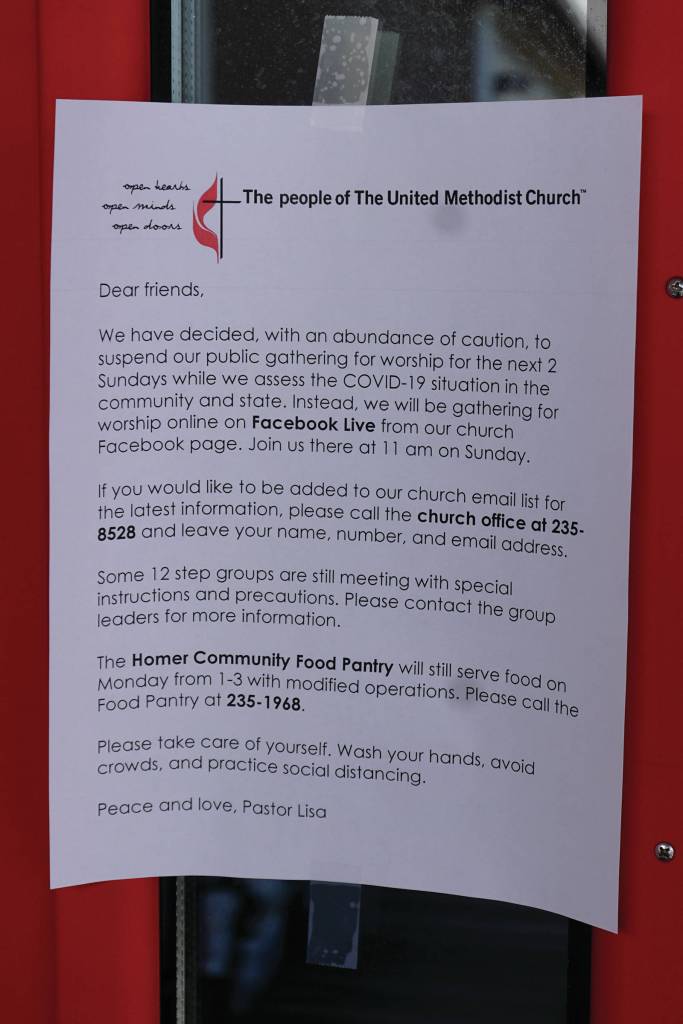 open hearts
open minds
open doors
The people of The United Methodist Church™
Dear friends,
We have decided, with an abundance of caution, to
suspend our public gathering for worship for the next 2
Sundays while we assess the COVID-19 situation in the
community and state. Instead, we will be gathering for
worship online on Facebook Live from our church
Facebook page. Join us there at 11 am on Sunday.
If you would like to be added to our church email list for
the latest information, please call the church office at 235-
8528 and leave your name, number, and email address.
Some 12 step groups are still meeting with special
instructions and precautions. Please contact the group
leaders for more information.
The Homer Community Food Pantry will still serve food on
Monday from 1-3 with modified operations. Please call the
Food Pantry at 235-1968.
Please take care of yourself. Wash your hands, avoid
crowds, and practice social distancing.
Peace and love, Pastor Lisa